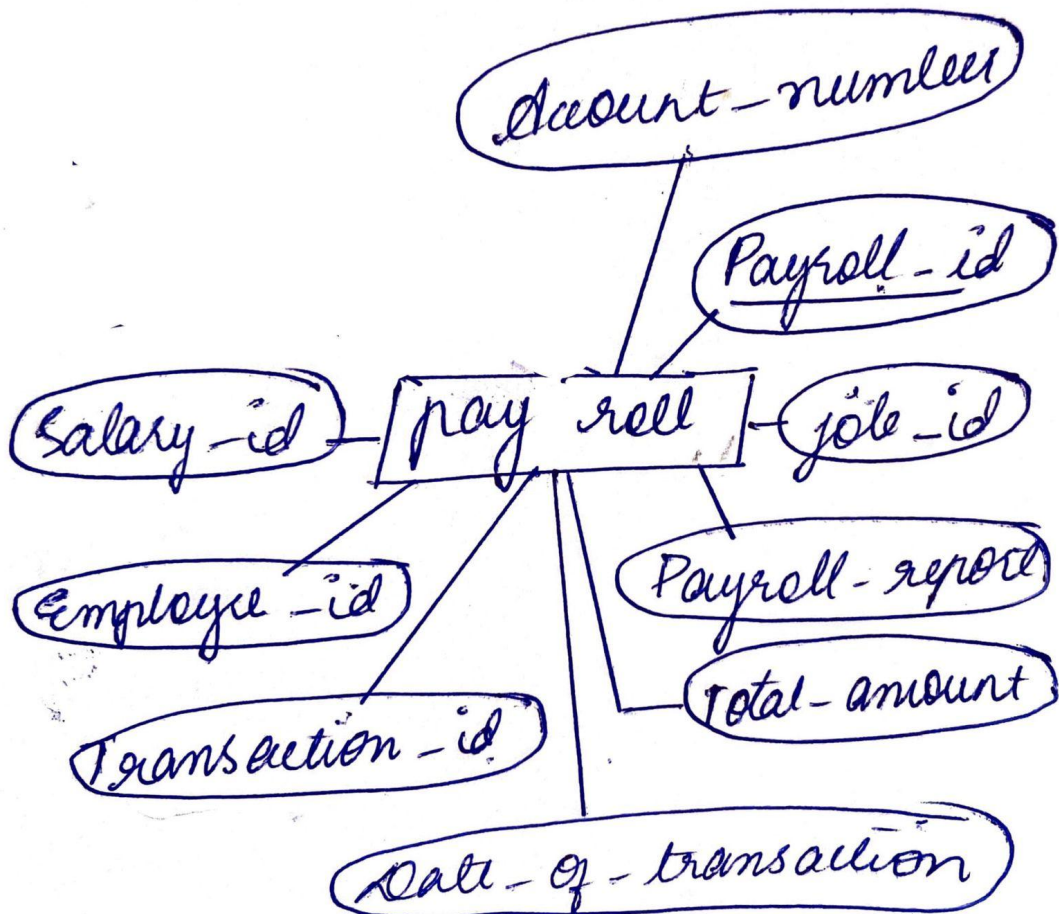 Account_number
Payroll_id
Salary_id
pay roll
job_id
Employee_id
Payroll_report
Total_amount
Transaction_id
Date_of_transaction